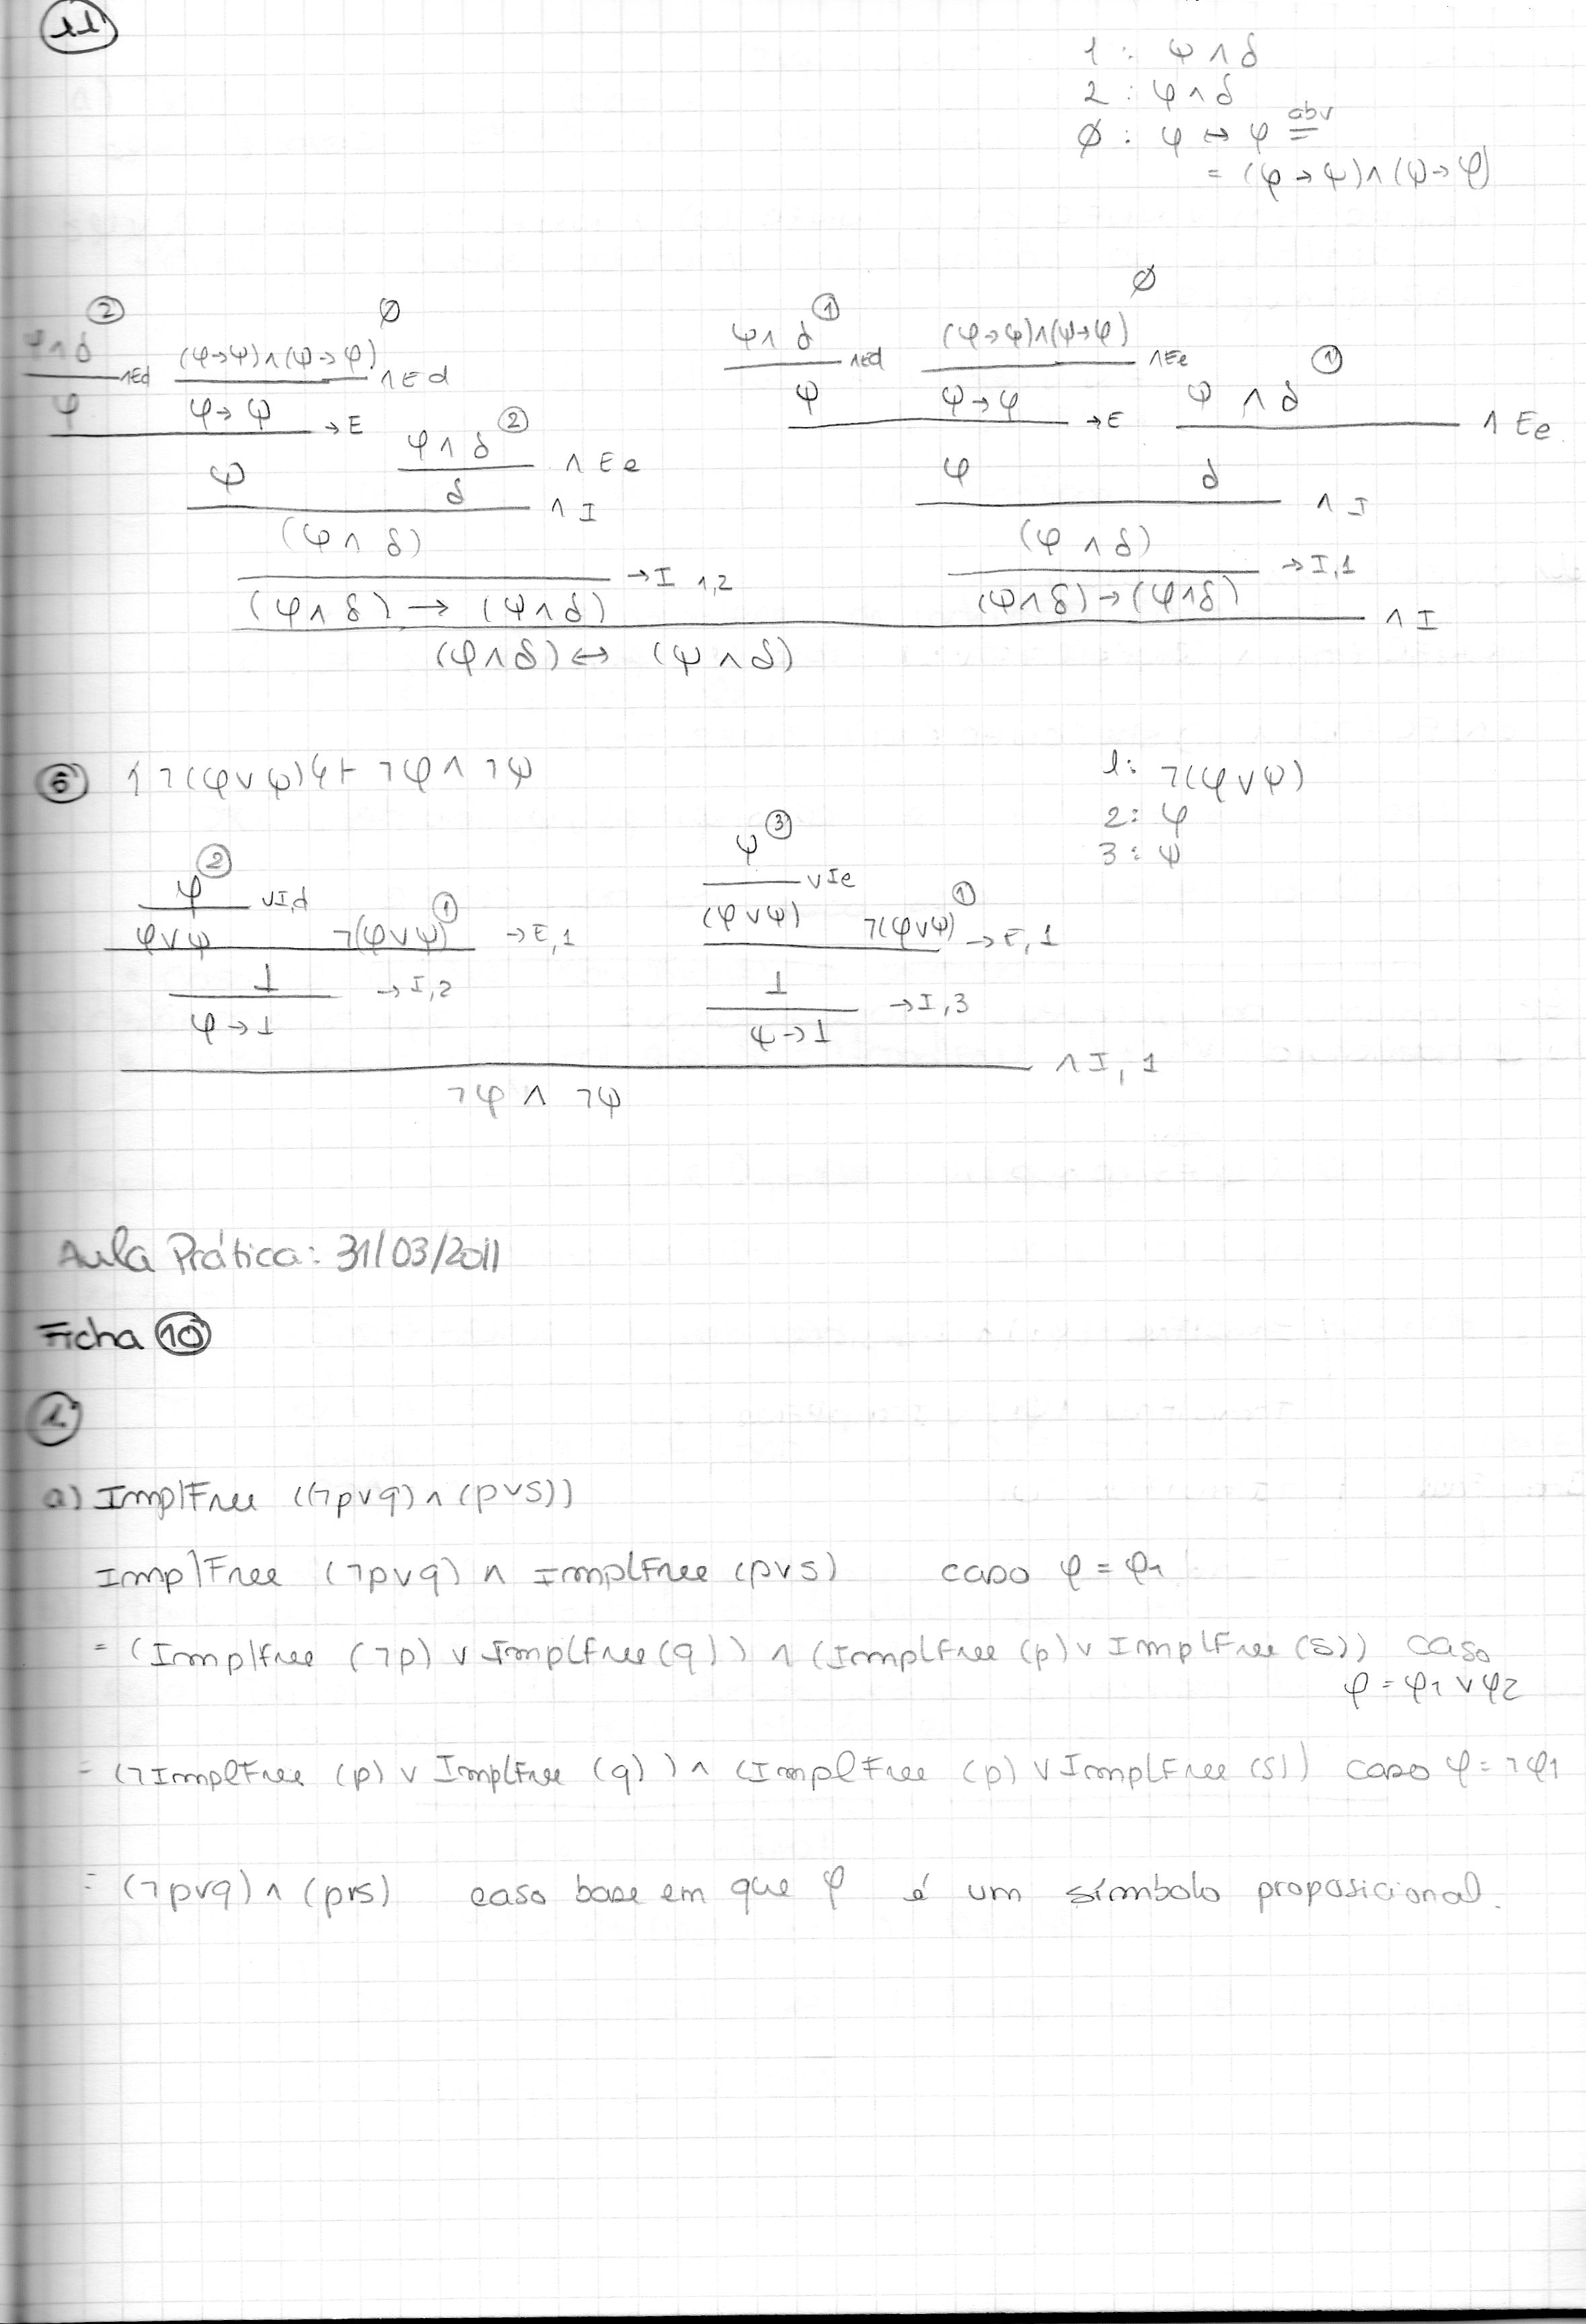 11
1 : ψ ∧ δ
2 : φ ∧ δ
∅ : φ ↔ φ abv =
= (φ → ψ) ∧ (ψ → φ)
φ ∧ δ ② ∧Ed (φ→ψ)∧(ψ→φ) ∅ ∧Ed
φ φ→ψ →E φ ∧ δ ② ∧Ee
ψ δ ∧I
(ψ ∧ δ) →I 1,2
(φ ∧ δ) → (ψ ∧ δ)
ψ ∧ δ ① ∧Ed (φ→ψ)∧(ψ→φ) ∅ ∧Ee
ψ ψ→φ →E ψ ∧ δ ① ∧Ee
φ δ ∧I
(φ ∧ δ) →I,1
(ψ∧δ)→(φ∧δ) ∧I
(φ∧δ) ↔ (ψ∧δ)
6 {¬(φ∨ψ)} ⊢ ¬φ ∧ ¬ψ
1: ¬(φ∨ψ)
2: φ
3: ψ
φ ② ∨Id
φ∨ψ ¬(φ∨ψ) ① →E,1
⊥ →I,2
φ→⊥
ψ ③ ∨Ie
(φ∨ψ) ¬(φ∨ψ) ① →E,1
⊥ →I,3
ψ→⊥
∧I, 1
¬φ ∧ ¬ψ
Aula Prática: 31/03/2011
Ficha 10
1.
a) ImplFree ((¬p∨q) ∧ (p∨s))
ImplFree (¬p∨q) ∧ ImplFree (p∨s) caso φ = φ1
= (ImplFree (¬p) ∨ ImplFree (q)) ∧ (ImplFree (p) ∨ ImplFree (s)) caso
φ = φ1 ∨ φ2
= (¬ImplFree (p) ∨ ImplFree (q)) ∧ (ImplFree (p) ∨ ImplFree (s)) caso φ = ¬φ1
= (¬p∨q) ∧ (p∨s) caso base em que φ é um símbolo proposicional.